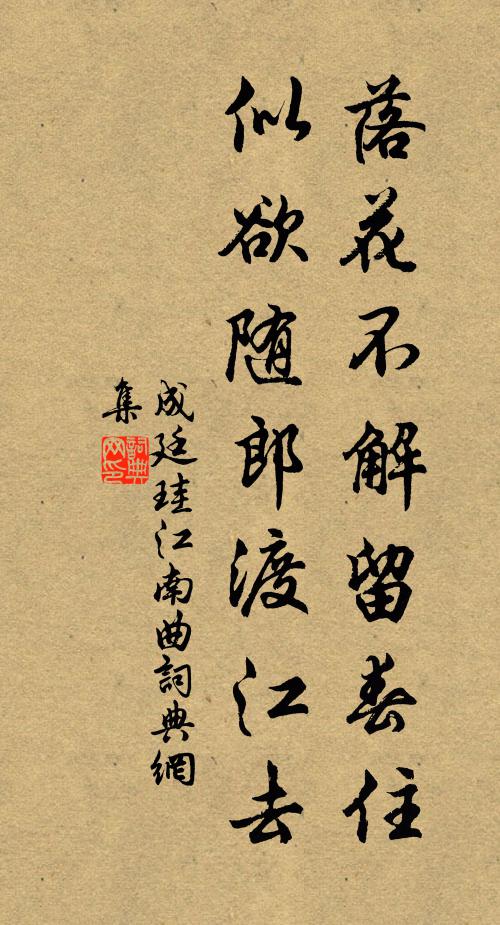 落花不解留春住
似欲随郎渡江去
成廷珪江南曲詞典網
集
詞典网印